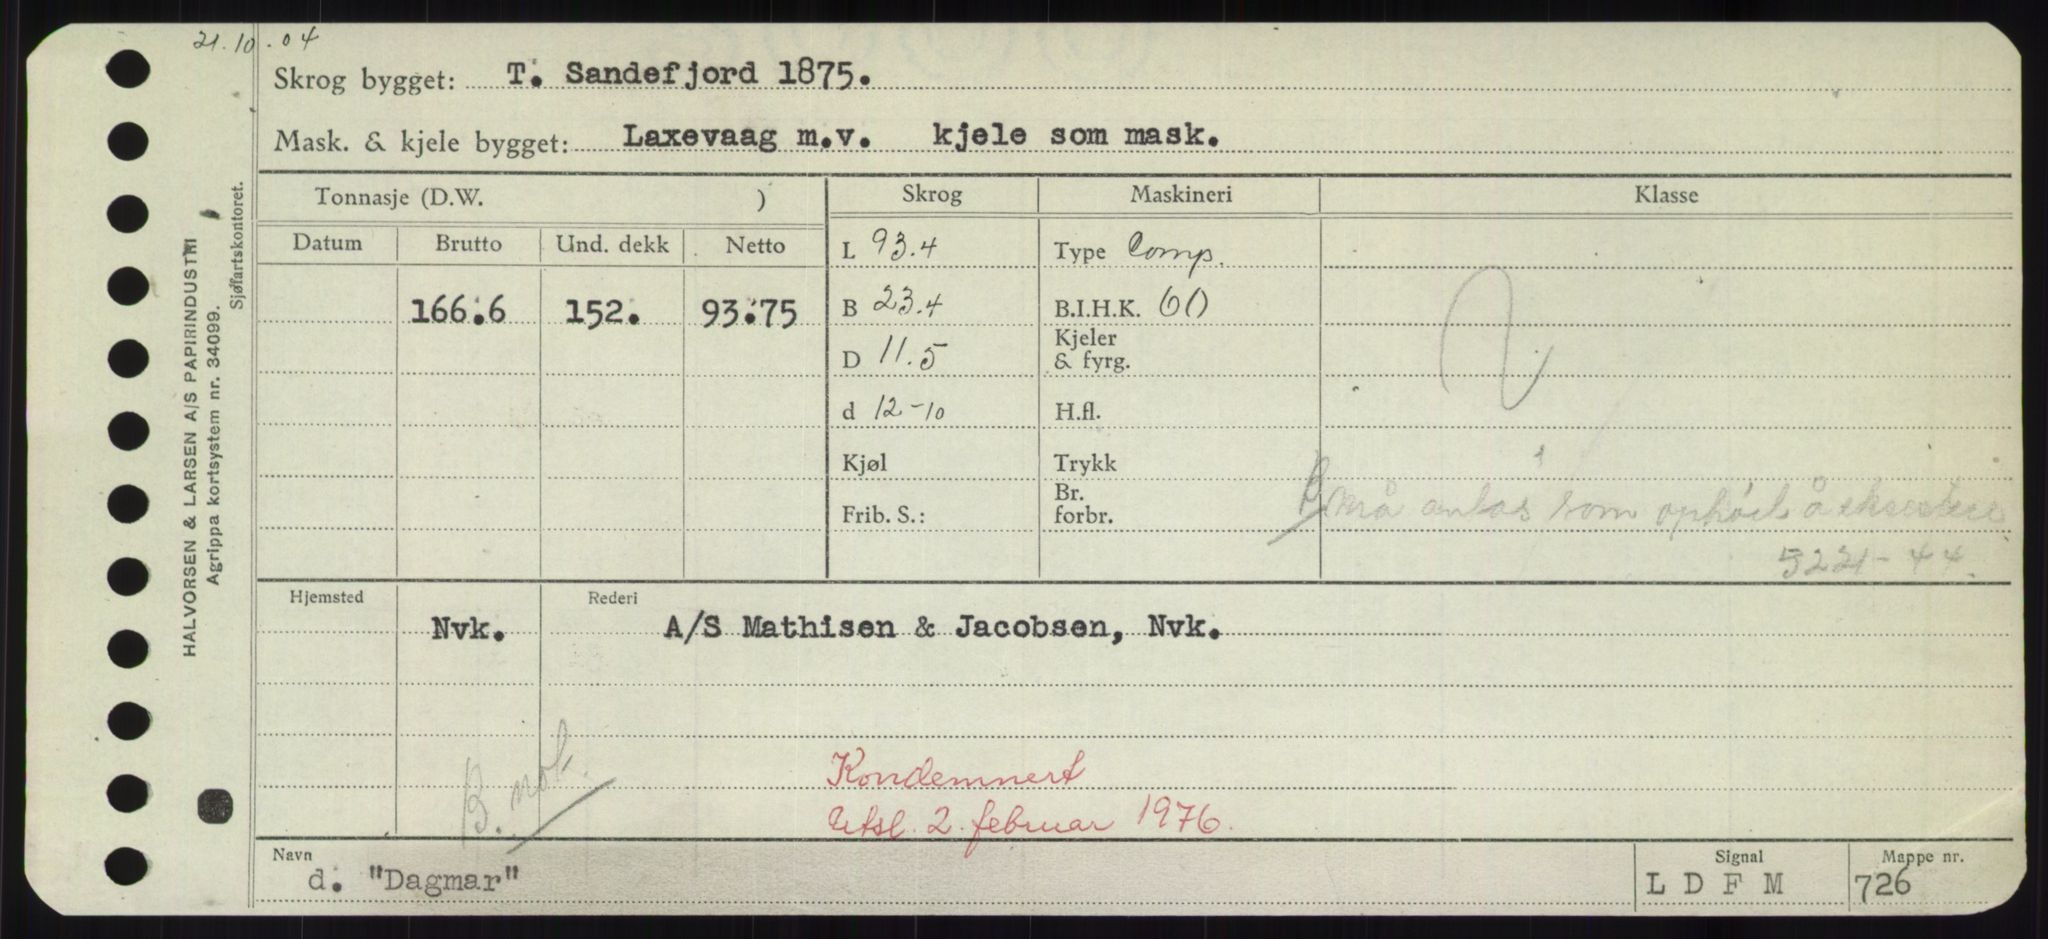 21.10.04
Skrog bygget: T. Sandefjord 1875.
Mask. & kjele bygget: Laxevaag m.v. kjele som mask.
Tonnasje (D.W. ) Skrog Maskineri Klasse
Datum Brutto Und. dekk Netto L 93.4 Type Comp.
166.6 152. 93.75 B 23.4 B.I.H.K. 60
D 11.5 Kjeler & fyrg.
d 12-10 H.fl.
Kjøl Trykk
Frib. S.: Br. forbr. må antas som ophört å eksistere
5221-44.
Hjemsted Rederi
Nvk. A/S Mathisen & Jacobsen, Nvk.
B. not.
Kondemnert
Utsl. 2. februar 1976.
Navn Signal Mappe nr.
d. "Dagmar" L D F M 726
HALVORSEN & LARSEN A/S PAPIRINDUSTRI
Agrippa kortsystem nr. 34099.
Sjøfartskontoret.